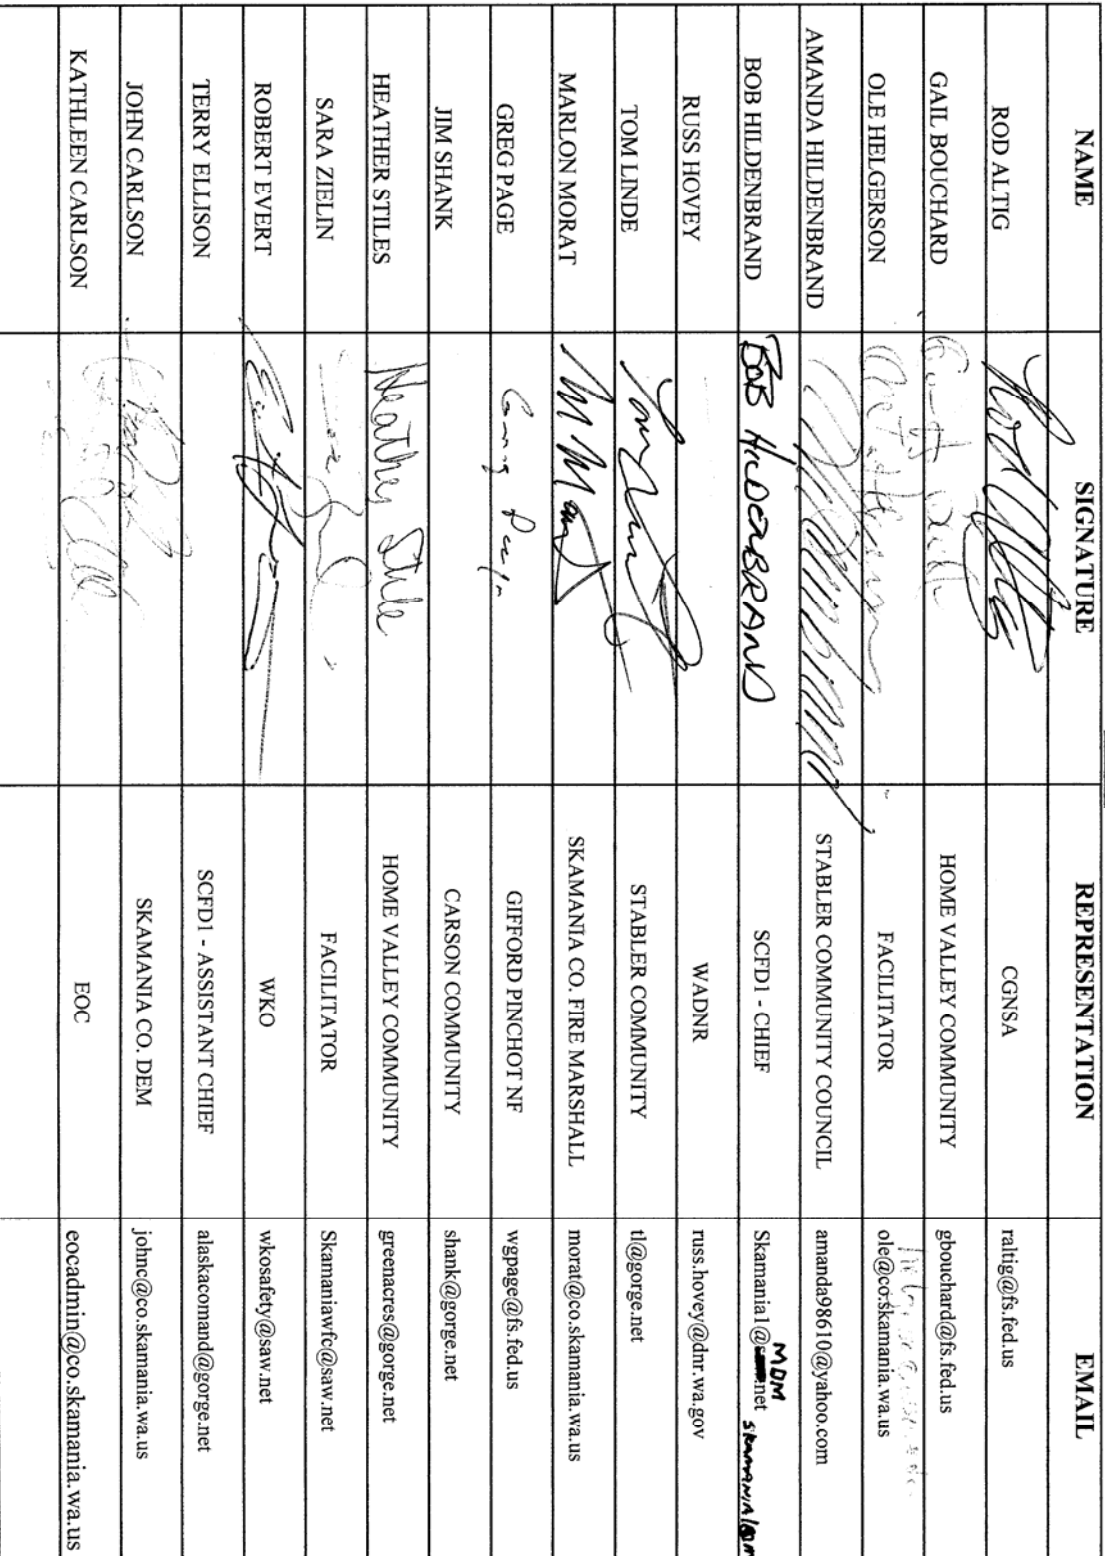 NAME SIGNATURE REPRESENTATION EMAIL
ROD ALTIG CGNSA raltig@fs.fed.us
GAIL BOUCHARD HOME VALLEY COMMUNITY gbouchard@fs.fed.us
OLE HELGERSON FACILITATOR ole@co.skamania.wa.us
AMANDA HILDENBRAND STABLER COMMUNITY COUNCIL amanda98610@yahoo.com
BOB HILDENBRAND BOB HILDENBRAND SCFD1 - CHIEF Skamania1@ MDM .net
RUSS HOVEY WADNR russ.hovey@dnr.wa.gov
TOM LINDE STABLER COMMUNITY tl@gorge.net
MARLON MORAT SKAMANIA CO. FIRE MARSHALL morat@co.skamania.wa.us
GREG PAGE GIFFORD PINCHOT NF wgpage@fs.fed.us
JIM SHANK CARSON COMMUNITY shank@gorge.net
HEATHER STILES Heather Stile HOME VALLEY COMMUNITY greenacres@gorge.net
SARA ZIELIN FACILITATOR Skamaniawfc@saw.net
ROBERT EVERT WKO wkosafety@saw.net
TERRY ELLISON SCFD1 - ASSISTANT CHIEF alaskacomand@gorge.net
JOHN CARLSON SKAMANIA CO. DEM johnc@co.skamania.wa.us
KATHLEEN CARLSON EOC eocadmin@co.skamania.wa.us